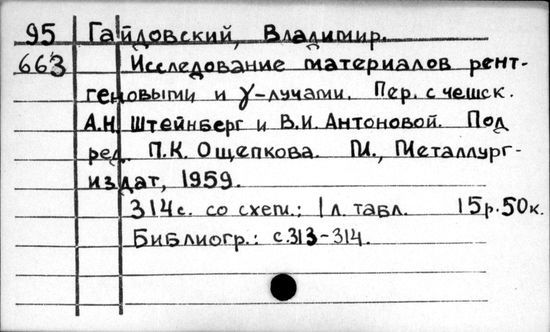 95 Гайдовский, Владимир.
663 Исследование материалов рент-
геновыми и γ-лучами. Пер. с чешск.
А.Н. Штейнберг и В.И. Антоновой. Под
ред. П.К. Ощепкова. М., Металлург-
издат, 1959.
314с. со схем.; 1 л. табл. 15р.50к.
Библиогр.: с.313-314.